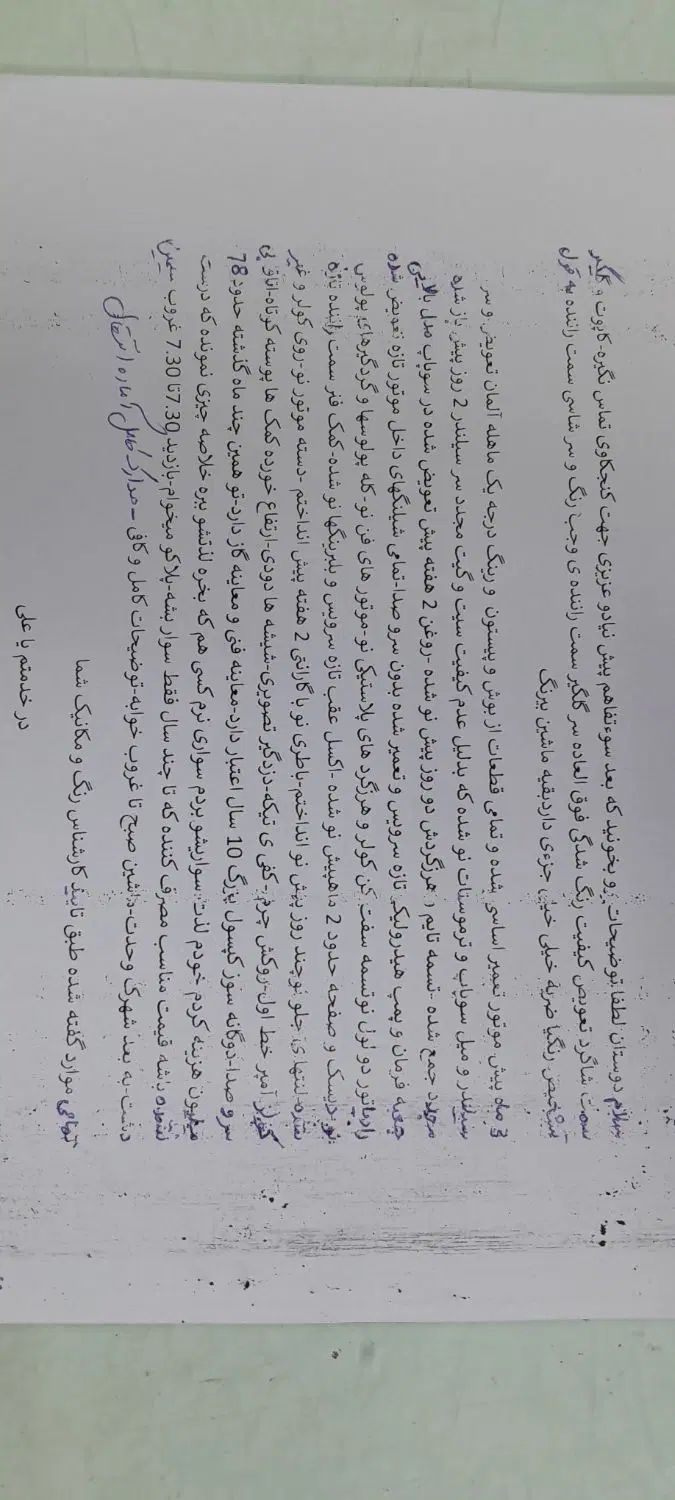 سلام دوستان لطفا توضیحات رو بخونید که بعد سوءتفاهم پیش نیادو عزیزی جهت کنجکاوی تماس نگیره-کاپوت و گلگیر
سمت شاگرد تعویض کیفیت رنگ شدگی فوق العاده سر گلگیر سمت راننده ی وجب رنگ و سر شاسی سمت راننده به قول
تشخیص رنگیا ضربه خیلی خیلی جزءی داردبقیه ماشین بیرنگ
3 ماه پیش موتور تعمیر اساسی شده و تمامی قطعات از بوش و پیستون و رینگ درجه یک ماهله آلمان تعویض و سر
سیلندر و میل سوپاپ و ترموستات نو شده که بدلیل عدم کیفیت سیت و گیت مجدد سر سیلندر 2 روز پیش باز شده
مجدد جمع شده -تسمه تایم و هرزگردش دو روز پیش نو شده -روغن 2 هفته پیش تعویض شده در سوپاپ مدل بالایی
جعبه فرمان و پمپ هیدرولیک تازه سرویس و تعمیر شده بدون سرو صدا-تمامی شیلنگهای داخل موتور تازه تعویض شده
رادیاتور دو لول نوتسمه سفت کن کولر و هرزگرد های پلاستیکی نو-موتور های فن نو-کله پولوسها و گردگیرهای پولوس
نو-دیسک و صفحه حدود 2 ماهپیش نو شده -اکسل عقب تازه سرویس و بلبرینگها نو شده-کمک فنر سمت راننده تازه
شده-لنتهای جلو نوچند روز پیش نو انداختم-باطری نو با گارانتی 2 هفته پیش انداختم -دسته موتور نو-روی کولر و غیر
کولر آمپر خط اول-روکش چرم-کفی ی تیکه-دزدگیر تصویری-شیشه ها دودی-ارتفاع خورده کمک ها پوسته کوتاه-اتاق بی
سرو صدا-دوگانه سوز کپسول بزرگ 10 سال اعتبار دارد-معاینه فنی و معاینه گاز دارد-تو همین چند ماه گذشته حدود 78
میلیون هزینه کردم خودم لذت سواریشو بردم سواری نرم کسی هم که بخره لذتشو ببره خلاصه چیزی نمونده که درست
نشده باشه قیمت مناسب مصرف کننده که تا چند سال فقط سوار بشه-پلاکو میخوام-بازدید 7.30 تا 7.30 غروب سیمین
دشت-به بعد شهرک وحدت-ماشین صبح تا غروب خوابه-توضیحات کامل و کافی - مدارک کامل آماده انتقال
تمامی موارد گفته شده طبق تایید کارشناس رنگ و مکانیک شما
در خدمتم یا علی